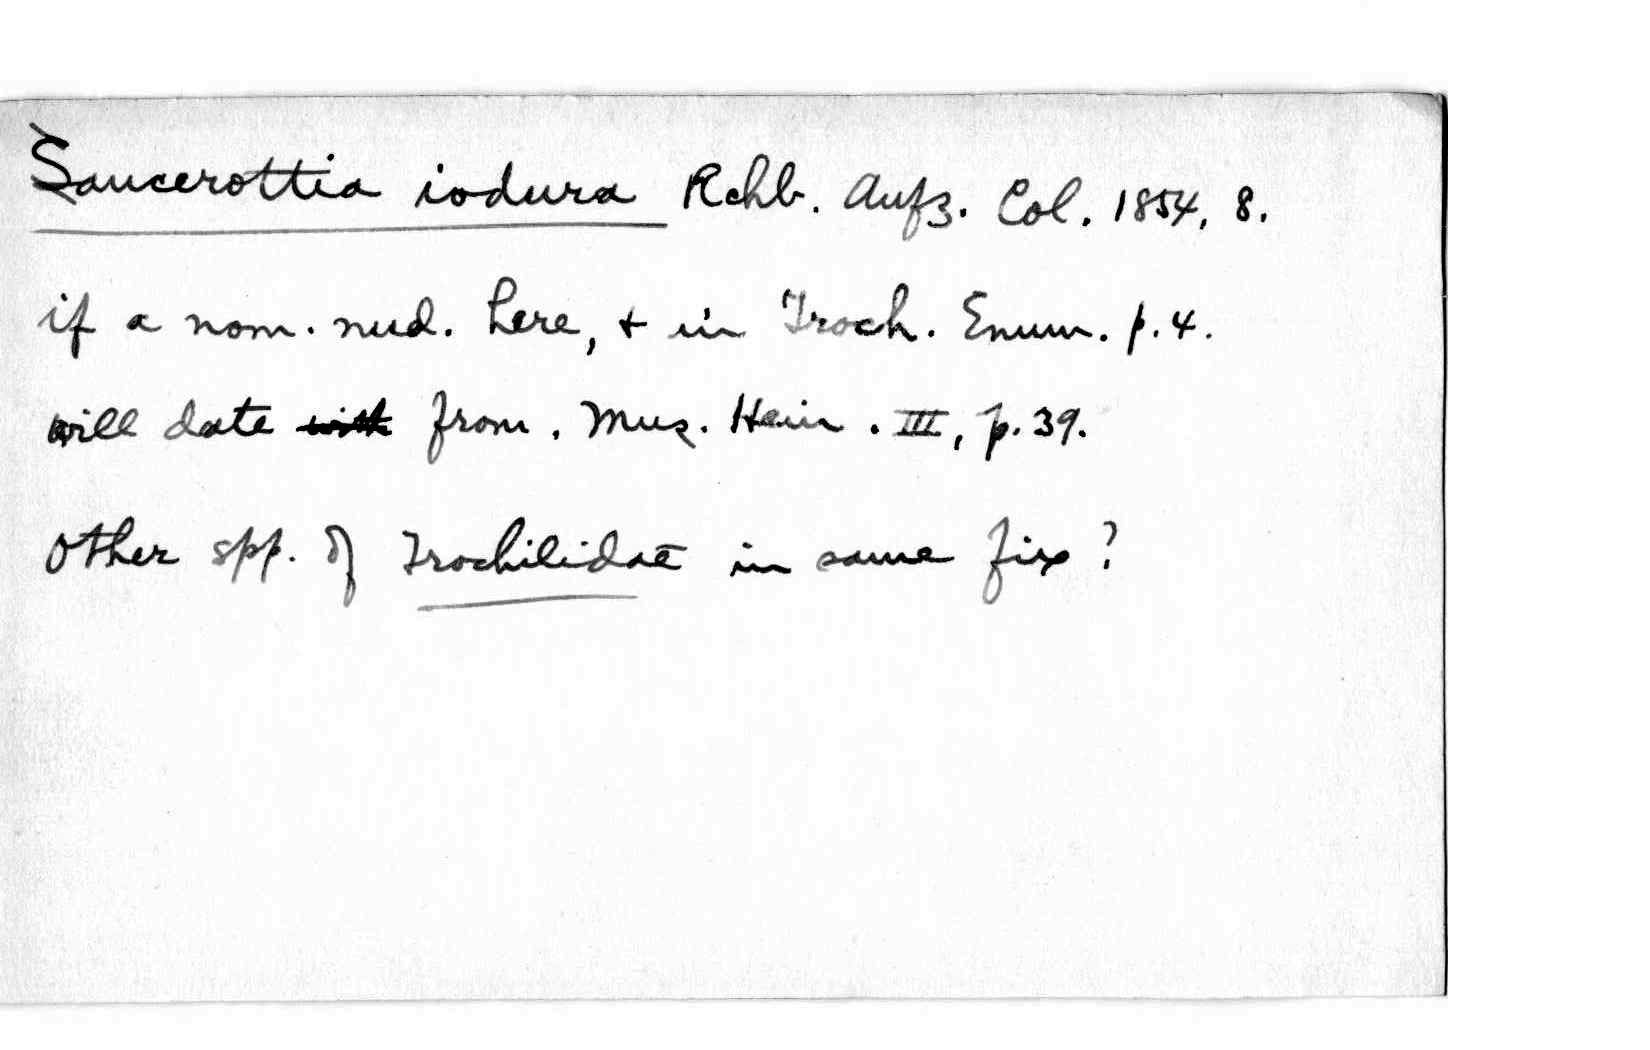 Saucerottia iodura Rchb. Aufz. Col. 1854, 8.
if a nom. nud. here, + in Troch. Enum. p. 4.
will date with from. Mus. Hein. III, p. 39.
Other spp. of Trochilidae in same fix?